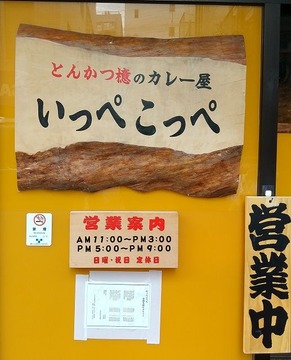 とんかつ檍のカレー屋
いっぺこっぺ
営業案内
AM11:00～PM3:00
PM5:00～PM9:00
日曜・祝日 定休日
営業中